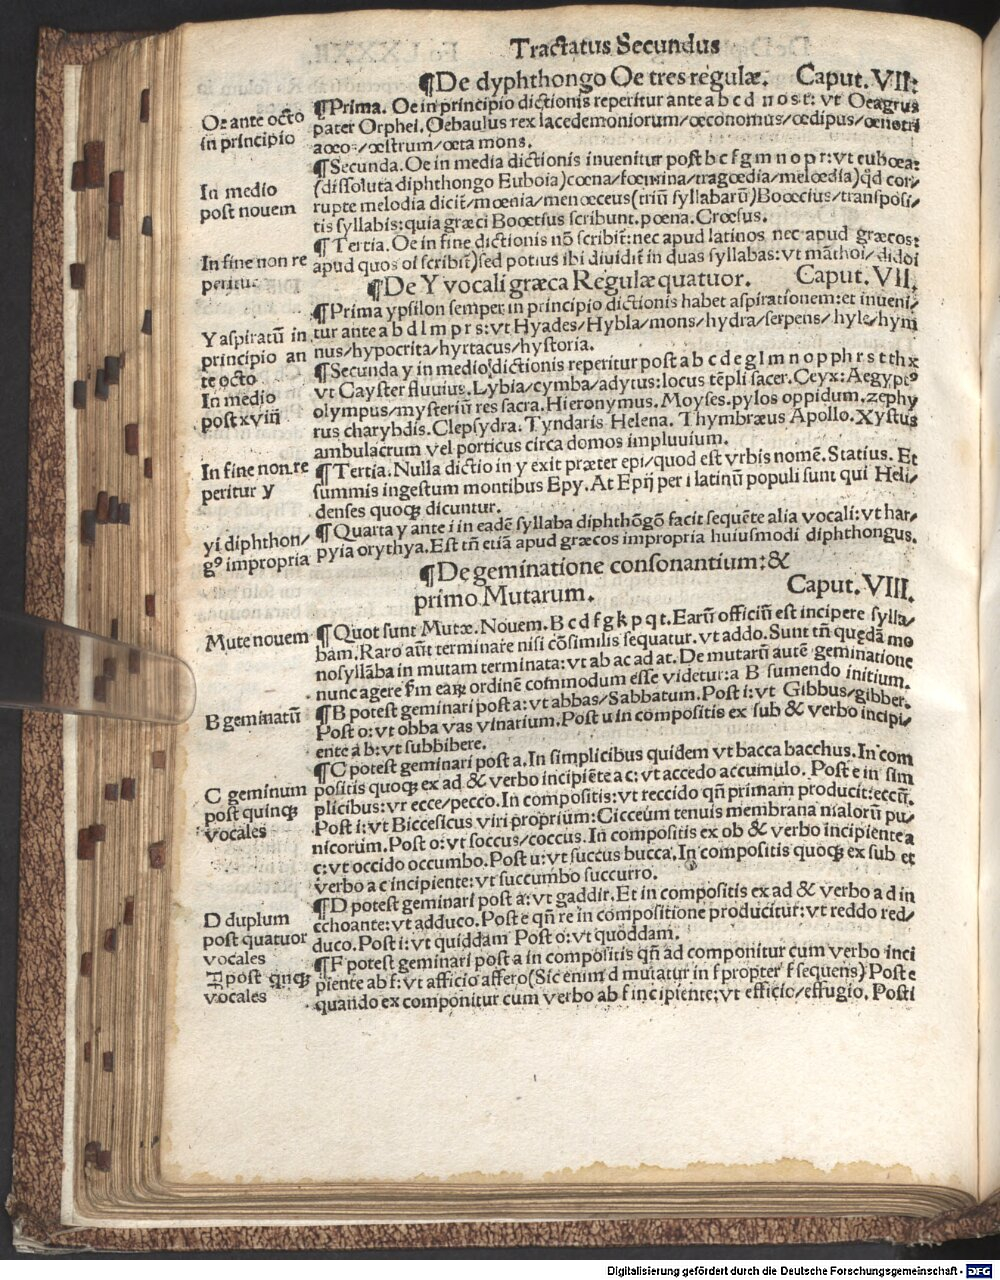 Tractatus Secundus
¶De dyphthongo Oe tres regulæ. Caput. VII:
¶Prima. Oe in principio dictionis reperitur ante a b c d n o s t: vt Oeagrus
pater Orphei. Oebaulus rex lacedemoniorum/œconomus/œdipus/œnotri
œstrum/œta mons.
Oe ante octo
in principio
¶Secunda. Oe in media dictionis inuenitur post b c f g m n o p r: vt eubœa:
(dissoluta diphthongo Euboia) cœna/fœmina/tragœdia/melœdia) qđ cor/
rupte melodia dicit̃/mœnia/menœceus (triũ syllabarũ) Boœcius/transposi/
tis syllabis: quia græci Boœtius scribunt. pœna. Crœsus.
In medio
post nouem
¶Tertia. Oe in fine dictionis nõ scribit̃: nec apud latinos nec apud græcos:
apud quos oi scribit̃) sed potius ibi diuidit̃ in duas syllabas: vt mãthoi/didoi
In fine non re
peritur
¶De Y vocali græca Regulæ quatuor. Caput. VII.
¶Prima ypsilon semper in principio dictionis habet aspirationem: et inueni/
tur ante a b d l m p r s: vt Hyades/Hybla/mons/hydra/serpens/hyle/hym
nus/hypocrita/hyrtacus/hystoria.
Y aspiratũ in
principio an
te octo
¶Secunda y in medio dictionis reperitur post a b c d e g l m n o p ph r s t th x
vt Cayster fluuius. Lybia/cymba/adytus: locus tẽpli sacer. Ceyx: Aegyptꝰ
olympus/mysteriũ res sacra. Hieronymus. Moyses. pylos oppidum. zephy
rus charybdis. Clepsydra. Tyndaris Helena. Thymbræus Apollo. Xystus
ambulacrum vel porticus circa domos impluuium.
In medio
post xviij
¶Tertia. Nulla dictio in y exit præter epi/quod est vrbis nomẽ. Statius. Et
summis ingestum montibus Epy. At Epij per i latinũ populi sunt qui Heli/
denses quoqꝫ dicuntur.
In fine non re
peritur y
¶Quarta y ante i in eadẽ syllaba diphthõgõ facit sequẽte alia vocali: vt har/
pyia orythya. Est tñ etiã apud græcos impropria huiusmodi diphthongus.
yi diphthon/
gꝰ impropria
¶De geminatione consonantium: &
primo Mutarum. Caput. VIII.
¶Quot sunt Mutæ. Nouem. B c d f g k p q t. Earũ officiũ est incipere sylla/
bam. Raro aũt terminare nisi cõsimilis sequatur. vt addo. Sunt tñ quędã mo
nosyllãba in mutam terminata: vt ab ac ad at. De mutarũ autẽ geminatione
nunc agere fm earꝝ ordinẽ commodum esse videtur: a B sumendo initium.
Mute nouem
¶B potest geminari post a: vt abbas/Sabbatum. Post i: vt Gibbus/gibber.
Post o: vt obba vas vinarium. Post u in compositis ex sub & verbo incipi/
ente a b: vt subbibere.
B geminatũ
¶C potest geminari post a. In simplicibus quidem vt bacca bacchus. In com
positis quoqꝫ ex ad & verbo incipiẽte a c: vt accedo accumulo. Post e in sim
plicibus: vt ecce/pecco. In compositis: vt reccido qñ primam producit: eccũ.
Post i: vt Biccesicus viri proprium: Cicceum tenuis membrana malorũ pu/
nicorum. Post o: vt soccus/coccus. In compositis ex ob & verbo incipiente a
c: vt occido occumbo. Post u: vt succus bucca. In compositis quoqꝫ ex sub et
verbo a c incipiente: vt succumbo succurro.
C geminum
post quinqꝫ
vocales
¶D potest geminari post a: vt gaddir. Et in compositis ex ad & verbo a d in
cchoante: vt adduco. Post e qñ re in compositione producitur: vt reddo red/
duco. Post i: vt quiddam Post o: vt quoddam.
D duplum
post quatuor
vocales
¶F potest geminari post a in compositis qñ ad componitur cum verbo inci
piente ab f: vt afficio affero (Sic enim d mutatur in f propter f sequens) Post e
quando ex componitur cum verbo ab f incipiente: vt efficio/effugio. Post i
F post qnqꝫ
vocales
Digitalisierung gefördert durch die Deutsche Forschungsgemeinschaft - DFG